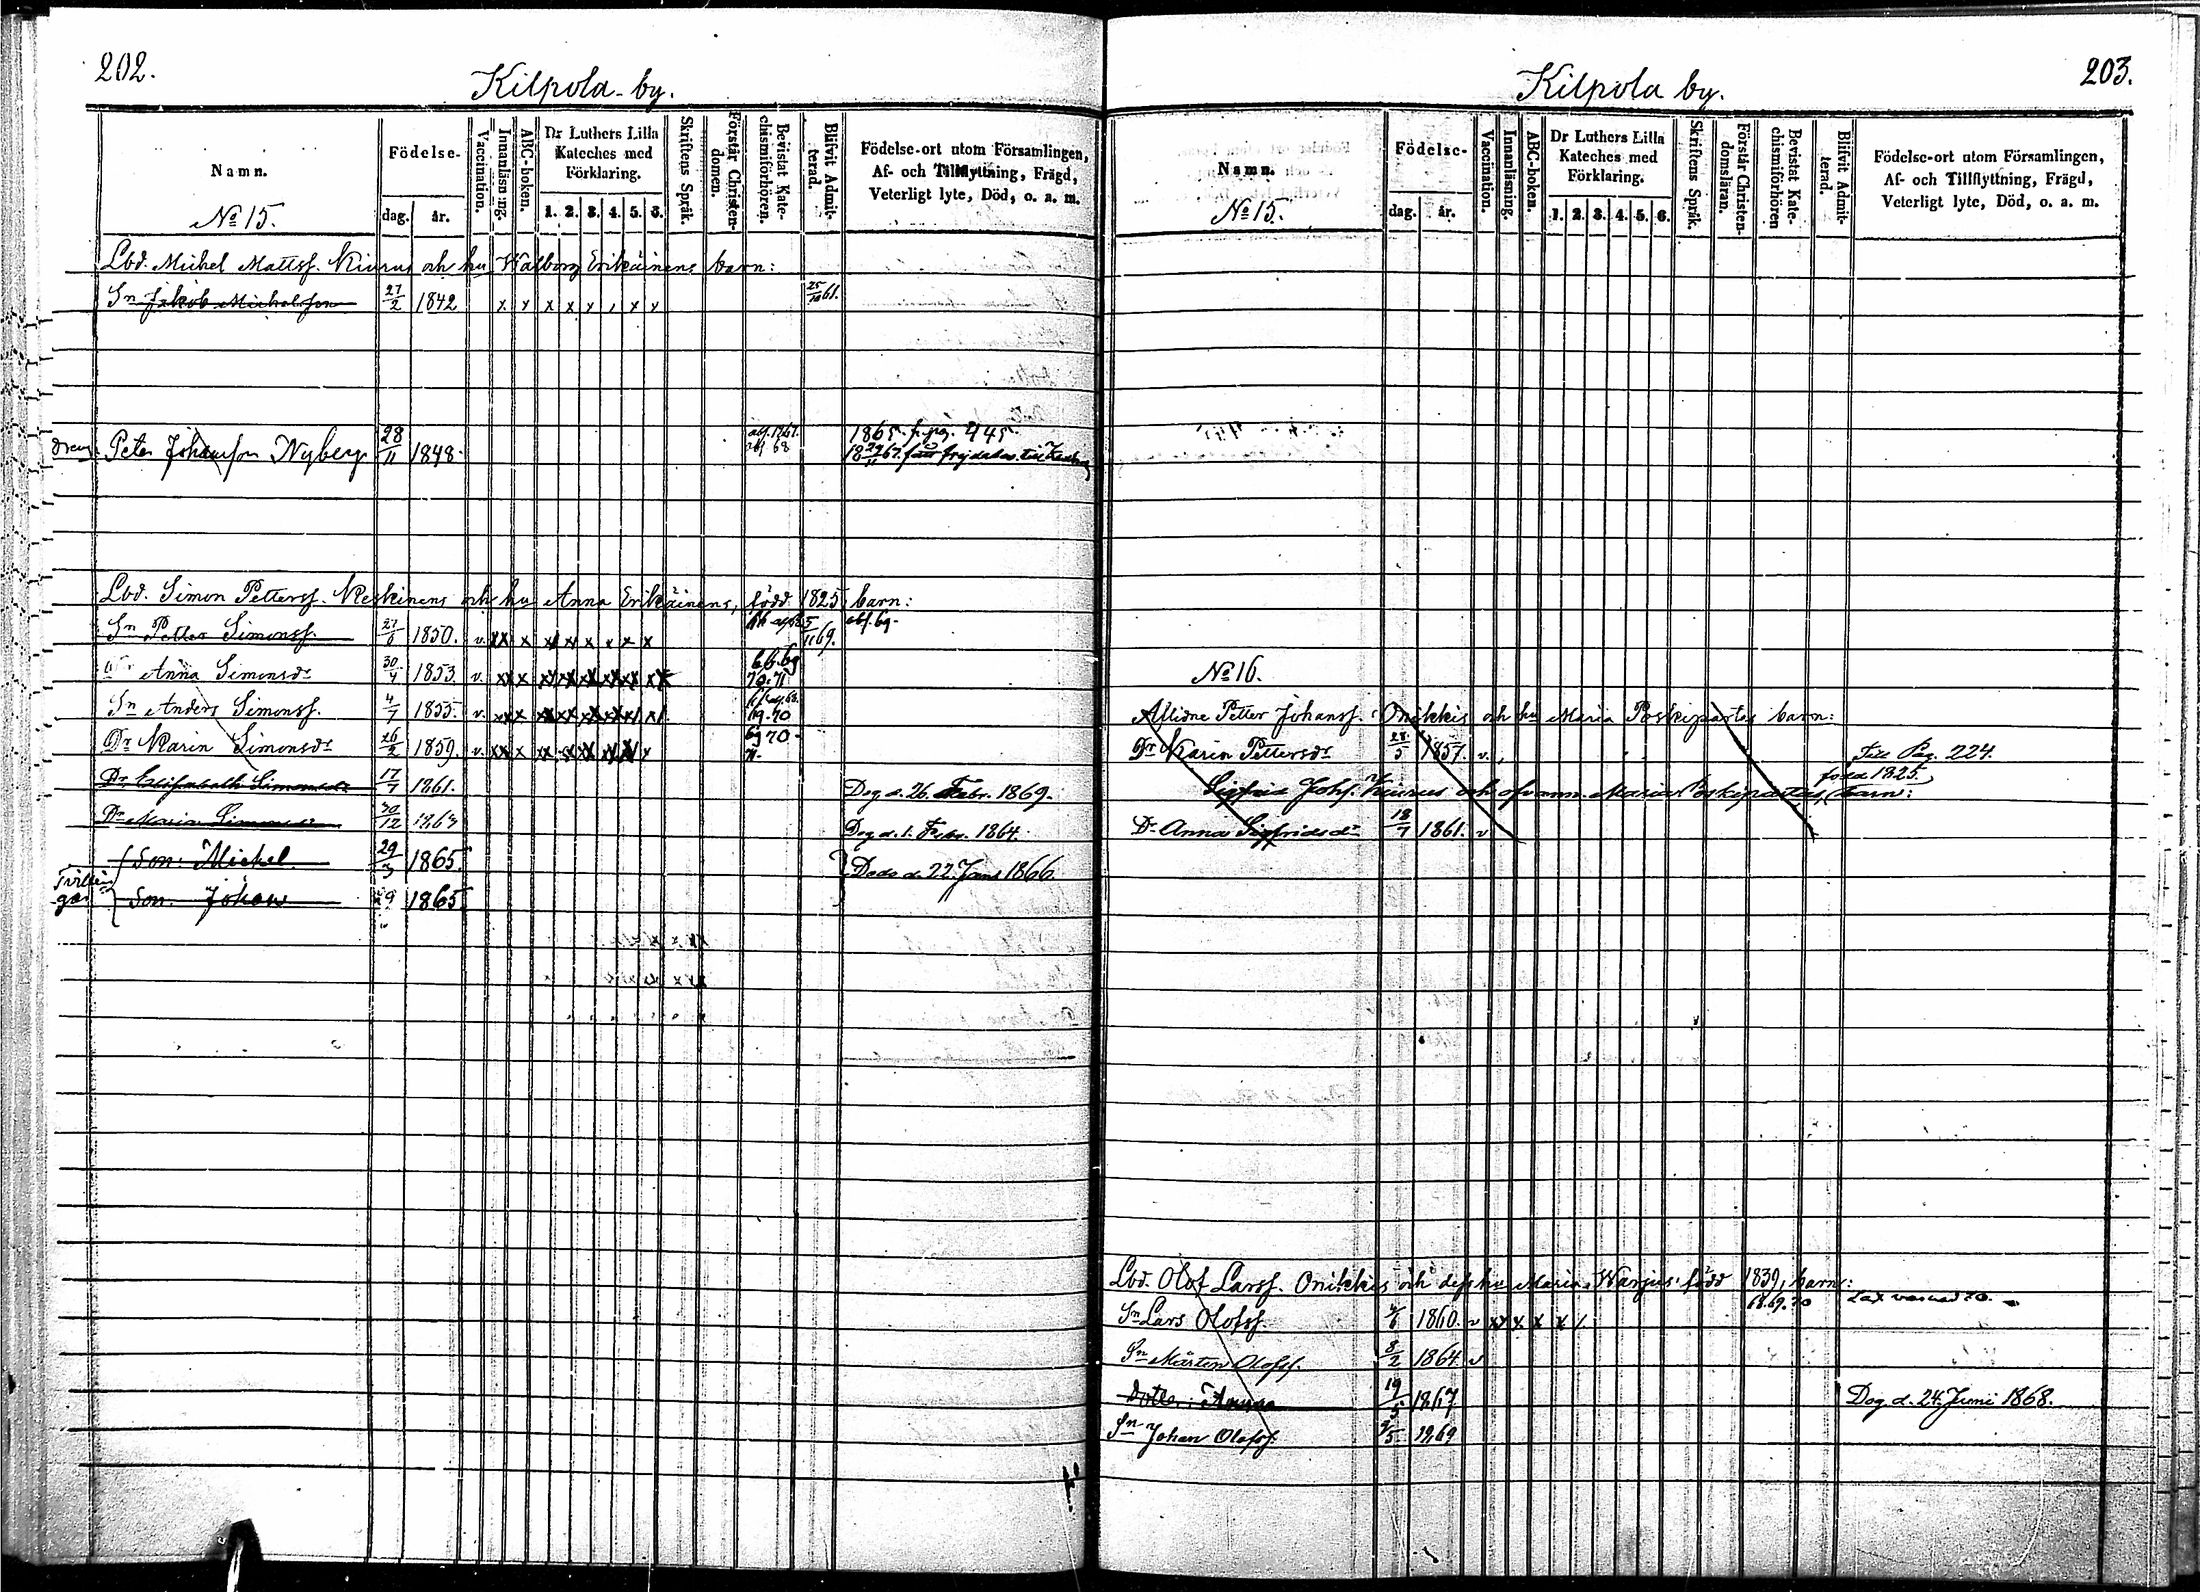 202.
Kilpola by.
Namn.
No 15.
Födelse-
dag. år.
Vaccination.
Innanläsning.
ABC-boken.
Dr Luthers Lilla
Kateches med
Förklaring.
1. 2. 3. 4. 5. 6.
Skriftens Språk.
Förstår Christen-
domen.
Bevistat Kate-
chismiförhören.
Blifvit Admit-
terad.
Födelse-ort utom Församlingen,
Af- och Tillflyttning, Frägd,
Veterligt lyte, Död, o. a. m.
Lbd. Michel Mattsf. Kiurus och hu Walborg Erikäinens barn:
Sn Jakob Michelsson 27/2 1842 x x x x x x x x 25/10 61.
Dreng Peter Johansson Nyberg 28/11 1848. 1865 fr. pag. 445
68 18 29/11 67. till
Lbd. Simon Pettersf. Keskinens och hu Anna Erikäinens, född 1825, barn:
Sn Petter Simonsf. 27/6 1850. v. xx x x x x x x x 5/11 69.
Dr Anna Simonsdr 30/4 1853. v. 68.69 70.71
Sn Anders Simonsf. 4/7 1855. v. 69.70
Dr Karin Simonsdr 26/2 1859. v. 69 70 71.
Dr Elisabeth Simonsdr 17/7 1861. Dog d. 26. Febr. 1869.
Dr Maria Simonsdr 30/12 1863 Dog d. 1. Febr. 1864.
Tvillin
gar
Son: Michel 29/9 1865.
Dödo d. 22. Jan. 1866.
Son: Johan 29 1865.
203.
Kilpola by.
Namn.
No 15.
Födelse-
dag. år.
Vaccination.
Innanläsning.
ABC-boken.
Dr Luthers Lilla
Kateches med
Förklaring.
1. 2. 3. 4. 5. 6.
Skriftens Språk.
Förstår Christen-
domsläran.
Bevistat Kate-
chismiförhören
Blifvit Admit-
terad.
Födelse-ort utom Församlingen,
Af- och Tillflyttning, Frägd,
Veterligt lyte, Död, o. a. m.
No 16.
Aflidne Petter Johansf. Onikkis och hu Maria Poskipartas barn:
Dr Karin Pettersdr 28/5 1857. v. Till Pag. 224.
född 1825.
Sigfrid Johsf. Kiurus och ofvann. Maria Poskipartas, barn:
Dr Anna Sigfridsdr 18/7 1861. v
Lbd. Olof Larsf. Onikkis och dess hu Maria Warjus, född 1839, barn:
Sn Lars Olofsf. 1860. v 68.69.70
Sn Mårten Olofsf. 8/2 1864. v
Dotter: Anna 19/5 1867 Dog d. 24. Juni 1868.
Sn Johan Olofsf. 1869